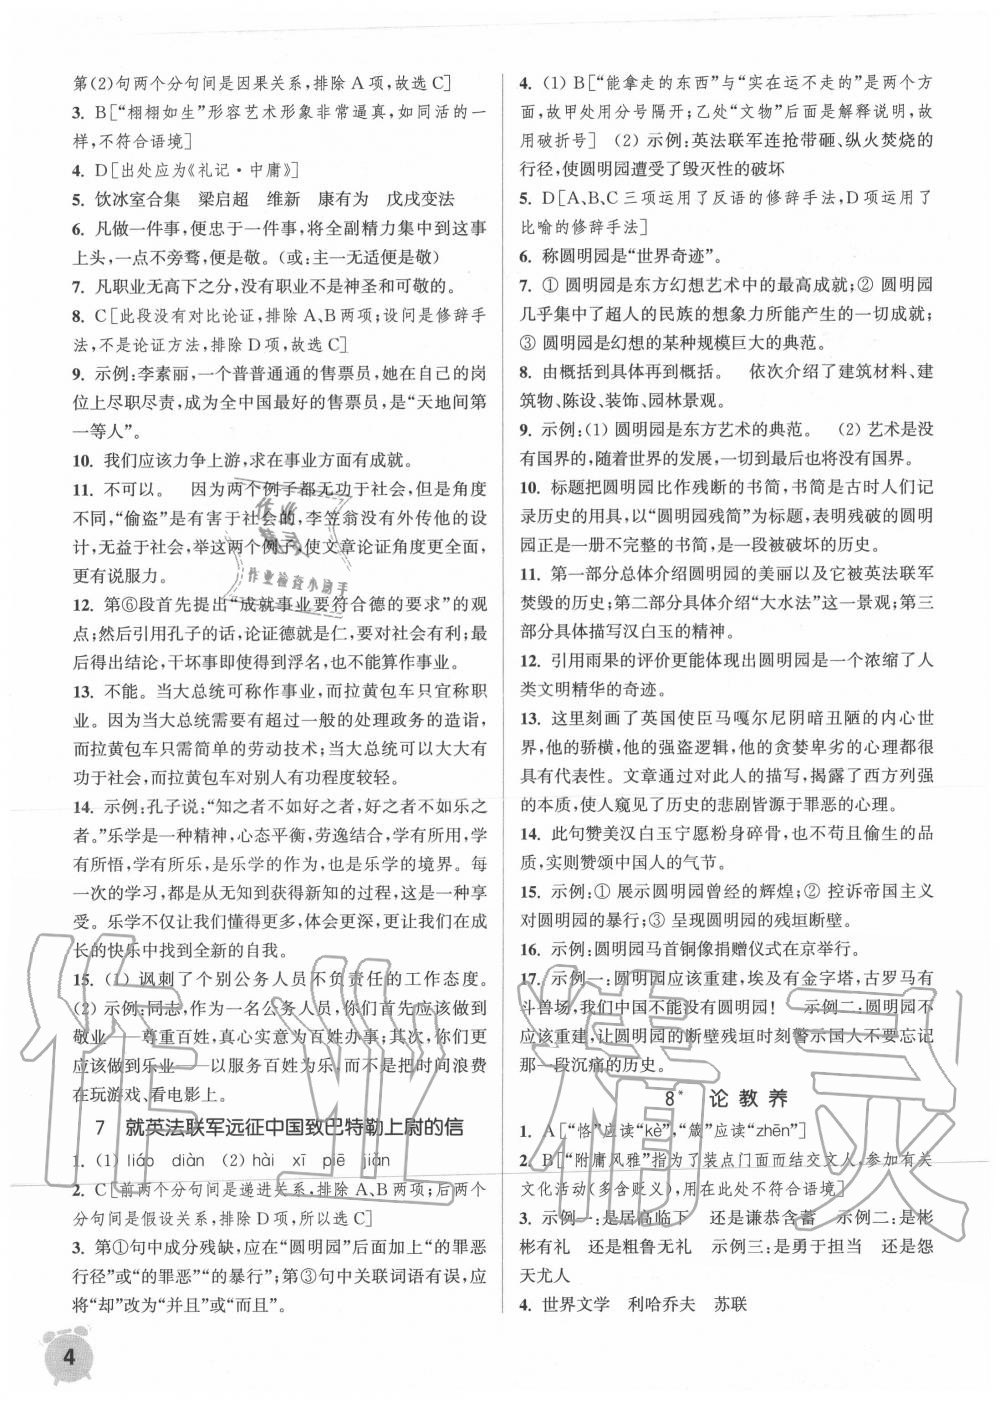 第(2)句两个分句间是因果关系,排除A项,故选C]
3. B[“栩栩如生”形容艺术形象非常逼真,如同活的一
样,不符合语境]
4. D[出处应为《礼记·中庸》]
5. 饮冰室合集 梁启超 维新 康有为 戊戌变法
6. 凡做一件事,便忠于一件事,将全副精力集中到这事
上头,一点不旁骛,便是敬。(或:主一无适便是敬)
7. 凡职业无高下之分,没有职业不是神圣和可敬的。
8. C[此段没有对比论证,排除A、B两项;设问是修辞手
法,不是论证方法,排除D项,故选C]
9. 示例:李素丽,一个普普通通的售票员,她在自己的岗
位上尽职尽责,成为全中国最好的售票员,是“天地间第
一等人”。
10. 我们应该力争上游,求在事业方面有成就。
11. 不可以。 因为两个例子都无功于社会,但是角度
不同,“偷盗”是有害于社会的,李笠翁没有外传他的设
计,无益于社会,举这两个例子,使文章论证角度更全面,
更有说服力。
12. 第⑥段首先提出“成就事业要符合德的要求”的观
点;然后引用孔子的话,论证德就是仁,要对社会有利;最
后得出结论,干坏事即使得到浮名,也不能算作事业。
13. 不能。当大总统可称作事业,而拉黄包车只宜称职
业。因为当大总统需要有超过一般的处理政务的造诣,
而拉黄包车只需简单的劳动技术;当大总统可以大大有
功于社会,而拉黄包车对别人有功程度较轻。
14. 示例:孔子说:“知之者不如好之者,好之者不如乐之
者。”乐学是一种精神,心态平衡,劳逸结合,学有所用,学
有所悟,学有所得,是乐学的作为,也是乐学的境界。每
一次的学习,都是从无知到获得新知的过程,这是一种享
受。乐学不仅让我们懂得更多,体会更深,更让我们在成
长的快乐中找到全新的自我。
15. (1) 讽刺了个别公务人员不负责任的工作态度。
(2) 示例:同志,作为一名公务人员,你们首先应该做到
敬业——尊重百姓,真心实意为百姓办事;其次,你们更
应该做到乐业——以服务百姓为乐,而不是把时间浪费
在玩游戏、看电影上。
7 就英法联军远征中国致巴特勒上尉的信
1. (1) liáo diàn (2) hài xī piē jiān
2. C[前两个分句间是递进关系,排除A、B两项;后两个
分句间是假设关系,排除D项,所以选C]
3. 第①句中成分残缺,应在“圆明园”后面加上“的罪恶
行径”或“的罪恶”“的暴行”;第③句中关联词语有误,应
将“却”改为“并且”或“而且”。
4. (1) B[“能拿走的东西”与“实在运不走的”是两个方
面,故甲处用分号隔开;乙处“文物”后面是解释说明,故
用破折号] (2) 示例:英法联军连抢带砸、纵火焚烧的
行径,使圆明园遭受了毁灭性的破坏
5. D[A、B、C三项运用了反语的修辞手法,D项运用了
比喻的修辞手法]
6. 称圆明园是“世界奇迹”。
7. ① 圆明园是东方幻想艺术中的最高成就;② 圆明园
几乎集中了超人的民族的想象力所能产生的一切成就;
③ 圆明园是幻想的某种规模巨大的典范。
8. 由概括到具体再到概括。 依次介绍了建筑材料、建
筑物、陈设、装饰、园林景观。
9. 示例:(1) 圆明园是东方艺术的典范。 (2) 艺术是没
有国界的,随着世界的发展,一切到最后都将没有国界。
10. 标题把圆明园比作残断的书简,书简是古时人们记
录历史的用具,以“圆明园残简”为标题,表明残破的圆明
园正是一册不完整的书简,是一段被破坏的历史。
11. 第一部分总体介绍圆明园的美丽以及它被英法联军
焚毁的历史;第二部分具体介绍“大水法”这一景观;第三
部分具体描写汉白玉的精神。
12. 引用雨果的评价更能体现出圆明园是一个浓缩了人
类文明精华的奇迹。
13. 这里刻画了英国使臣马嘎尔尼阴暗丑陋的内心世
界,他的骄横,他的强盗逻辑,他的贪婪卑劣的心理都很
具代表性。文章通过对此人的描写,揭露了西方列强的
本质,使人窥见了历史的悲剧皆源于罪恶的心理。
14. 此句赞美汉白玉宁愿粉身碎骨,也不苟且偷生的品
质,实则赞颂中国人的气节。
15. 示例:① 展示圆明园曾经的辉煌;② 控诉帝国主义
对圆明园的暴行;③ 呈现圆明园的残垣断壁。
16. 示例:圆明园马首铜像捐赠仪式在京举行。
17. 示例一:圆明园应该重建,埃及有金字塔,古罗马有
斗兽场,我们中国不能没有圆明园! 示例二:圆明园不
应该重建,让圆明园的断壁残垣时刻警示国人不要忘记
那一段沉痛的历史。
8* 论教养
1. A[“恪”应读“kè”,“箴”应读“zhēn”]
2. B[“附庸风雅”指为了装点门面而结交文人,参与有关
文化活动(多含贬义),用在此处不符合语境]
3. 示例一:是居高临下 还是谦恭含蓄 示例二:是彬
彬有礼 还是粗鲁无礼 示例三:是勇于担当 还是怨
天尤人
4. 世界文学 利哈乔夫 苏联
4
作业
精灵
作业检查小助手
作业精灵